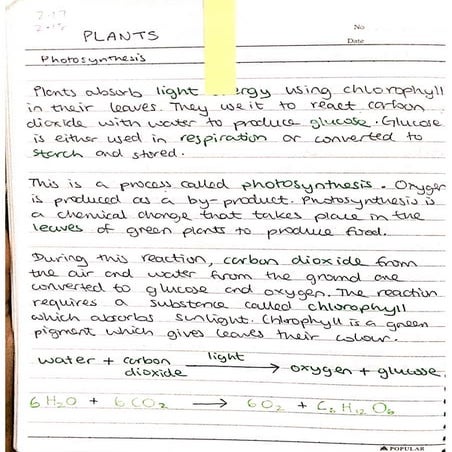 2.17
2.18
PLANTS
No
Date
Photosynthesis
Plants absorb light ergy using chlorophyll
in their leaves. They use it to react carbon
dioxide with water to produce glucose. Glucose
is either used in respiration or converted to
starch and stored.
This is a process called photosynthesis. Oxygen
is produced as a by-product. Photosynthesis is
a chemical change that takes place in the
leaves of green plants to produce food.
During this reaction, carbon dioxide from
the air and water from the ground are
converted to glucose and oxygen. The reaction
requires a substance called chlorophyll
which absorbs sunlight. Chlrophyll is a green
pigment which gives leaves their colour.
water + carbon dioxide light → oxygen + glucose
6 H₂O + 6 CO₂ → 6O₂ + C₆ H₁₂ O₆
POPULAR